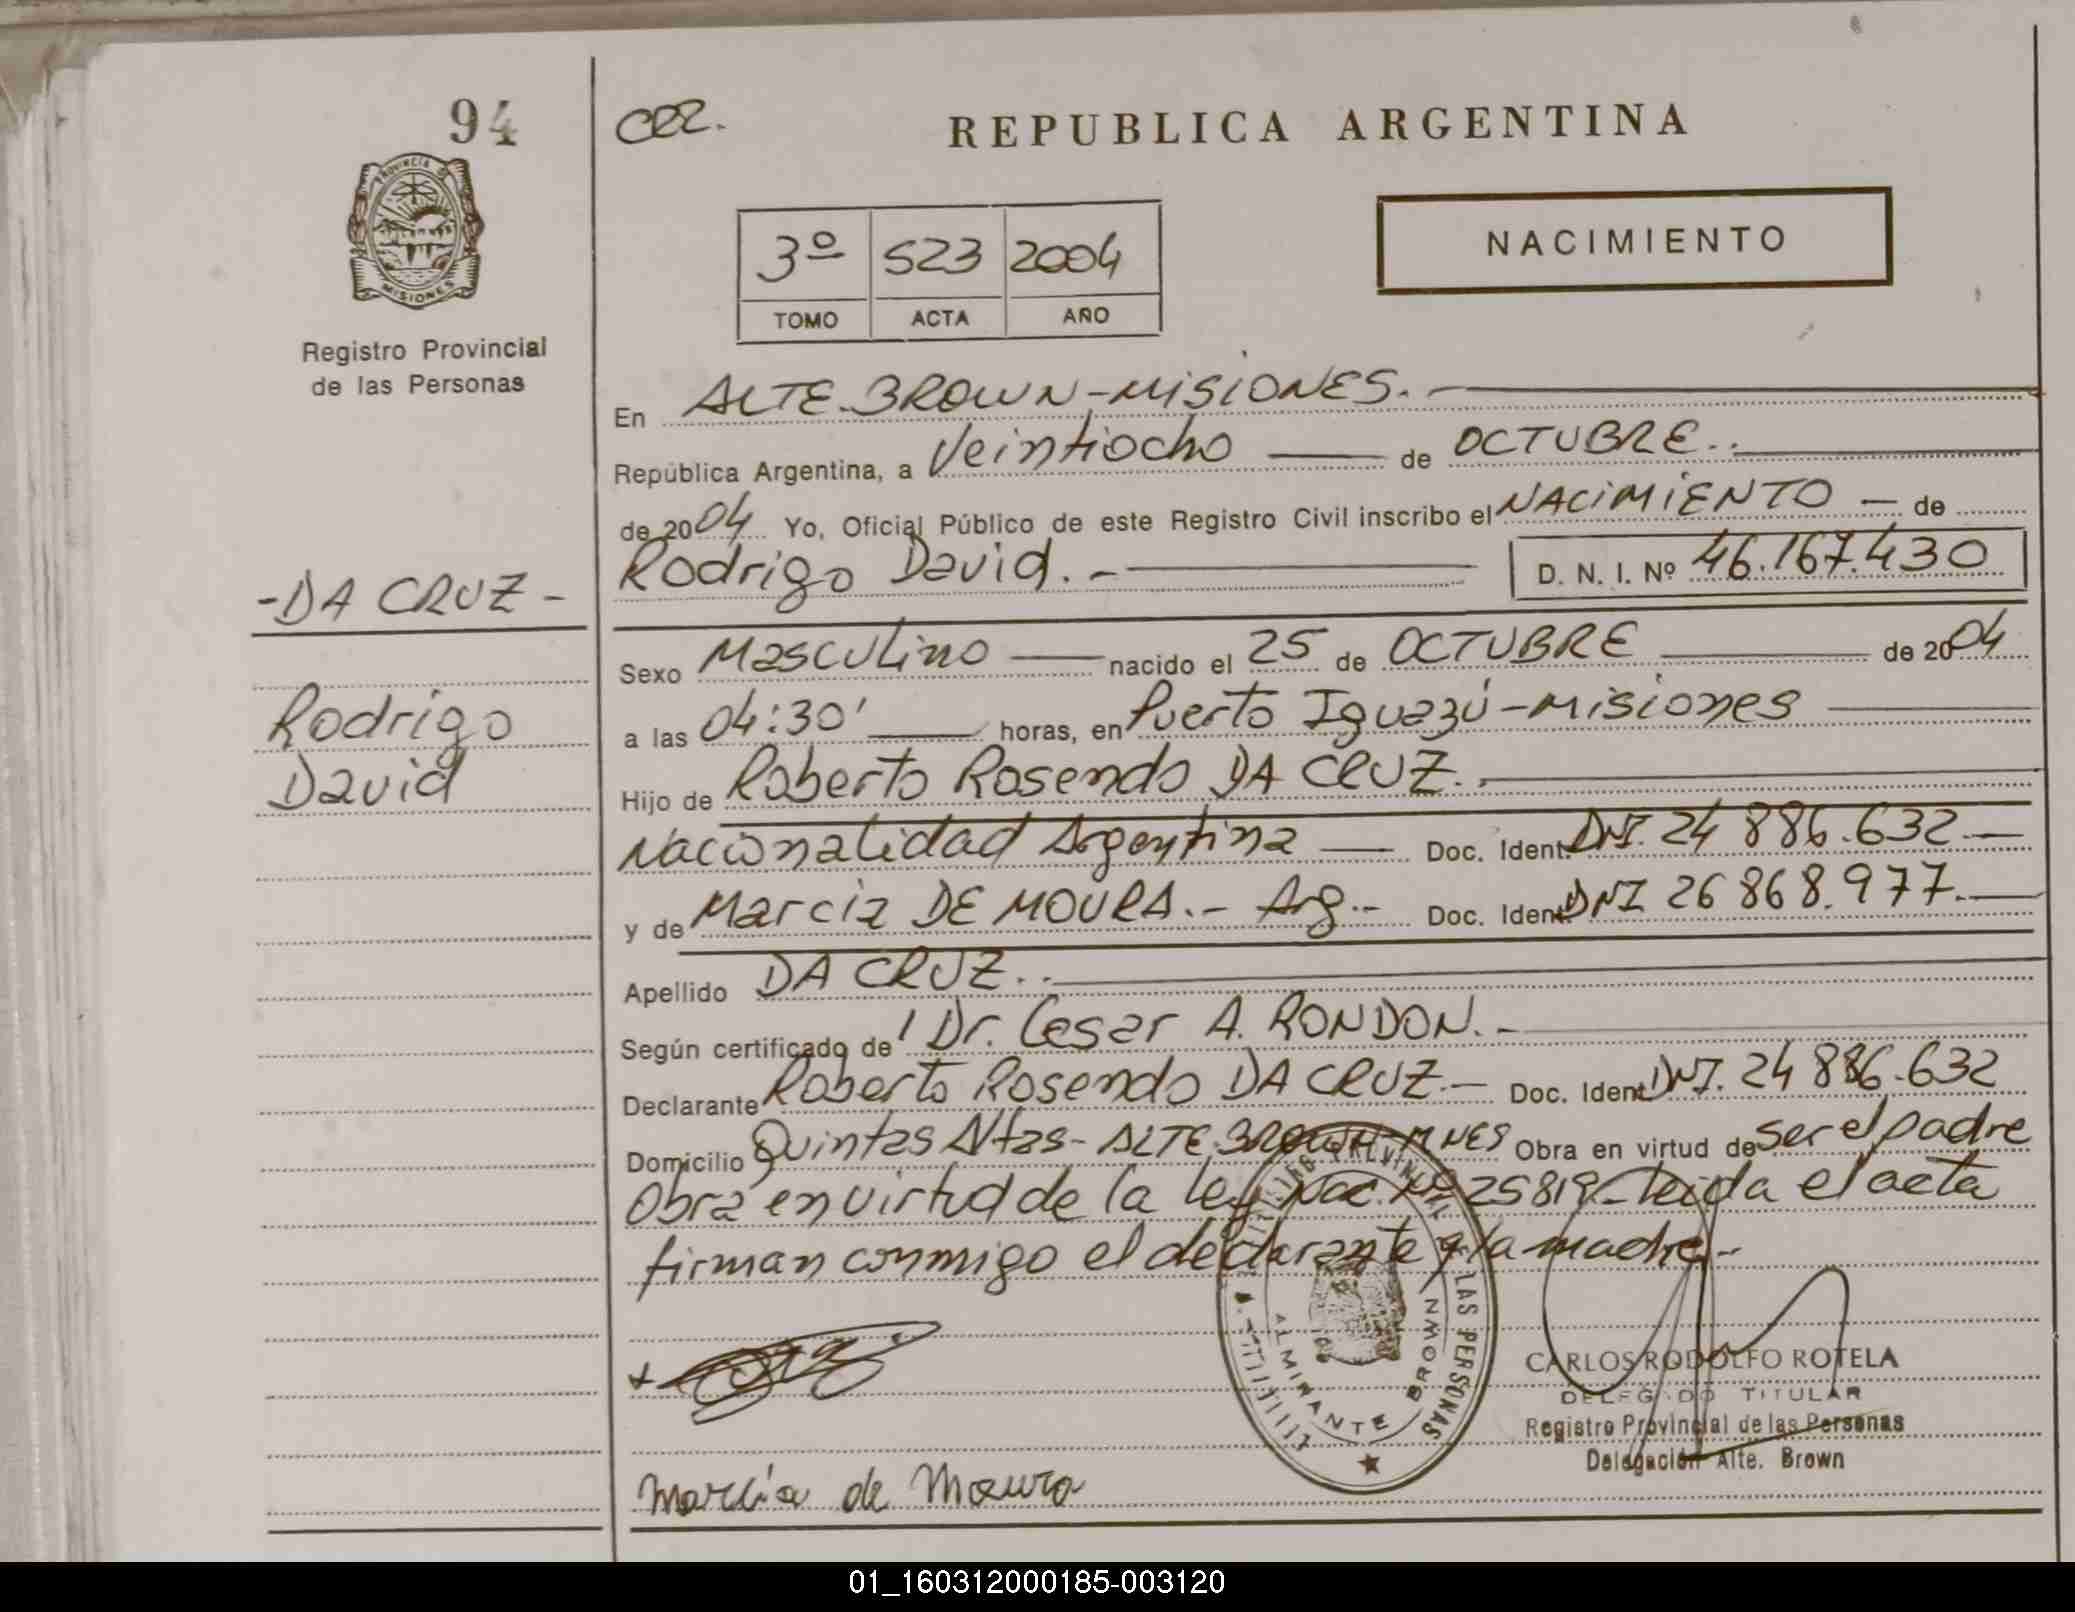 94
CRZ.
REPUBLICA ARGENTINA
PROVINCIA DE
MISIONES
Registro Provincial
de las Personas
3º 523 2004
TOMO ACTA AÑO
NACIMIENTO
En ALTE. BROWN-MISIONES.
República Argentina, a Veintiocho de OCTUBRE..
de 2004 Yo, Oficial Público de este Registro Civil inscribo el NACIMIENTO de
-DA CRUZ-
Rodrigo David.-
D. N. I. Nº 46.167.430
Sexo Masculino nacido el 25 de OCTUBRE de 2004
Rodrigo
David
a las 04:30' horas, en Puerto Iguazú-Misiones
Hijo de Roberto Rosendo DA CRUZ..
Nacionalidad Argentina Doc. Ident. DNI. 24 886.632
y de Marcia DE MOURA.- Arg.- Doc. Ident. DNI 26 868.977.
Apellido DA CRUZ..
Según certificado de l Dr. Cesar A. RONDON.-
Declarante Roberto Rosendo DA CRUZ.- Doc. Ident. DNI. 24 886.632
Domicilio Quintas Altas- ALTE. BROWN-MNES Obra en virtud de ser el padre
Obra en virtud de la Ley Nac. Nº 25819-Leida el acta
firman conmigo el declarante y la madre.-
LAS PERSONAS
ALMIRANTE BROWN
CARLOS RODOLFO ROTELA
DELEGADO TITULAR
Registro Provincial de las Personas
Delegación Alte. Brown
Marcia de Moura
01_160312000185-003120